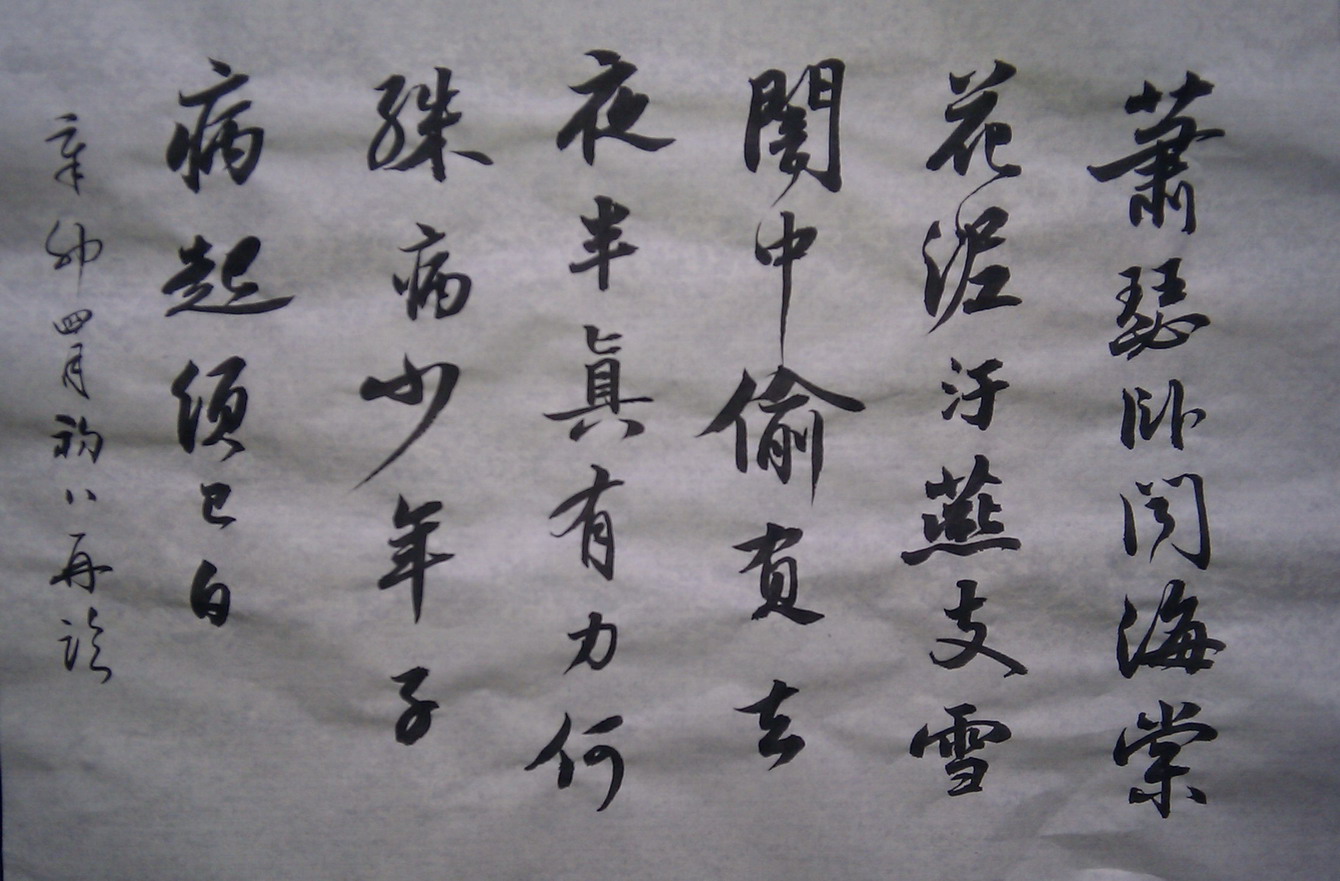 蕭瑟卧聞海棠
花泥汙燕支雪
闇中偷負去
夜半真有力何
殊病少年子
病起須已白
辛卯四月初八再臨